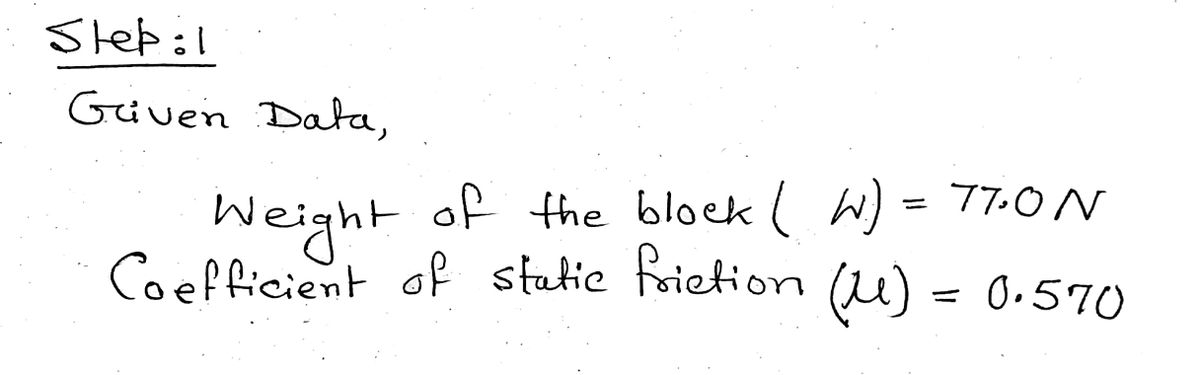 Step:1
Given Data,
Weight of the block ( W) = 77.0 N
Coefficient of static friction (μ) = 0.570